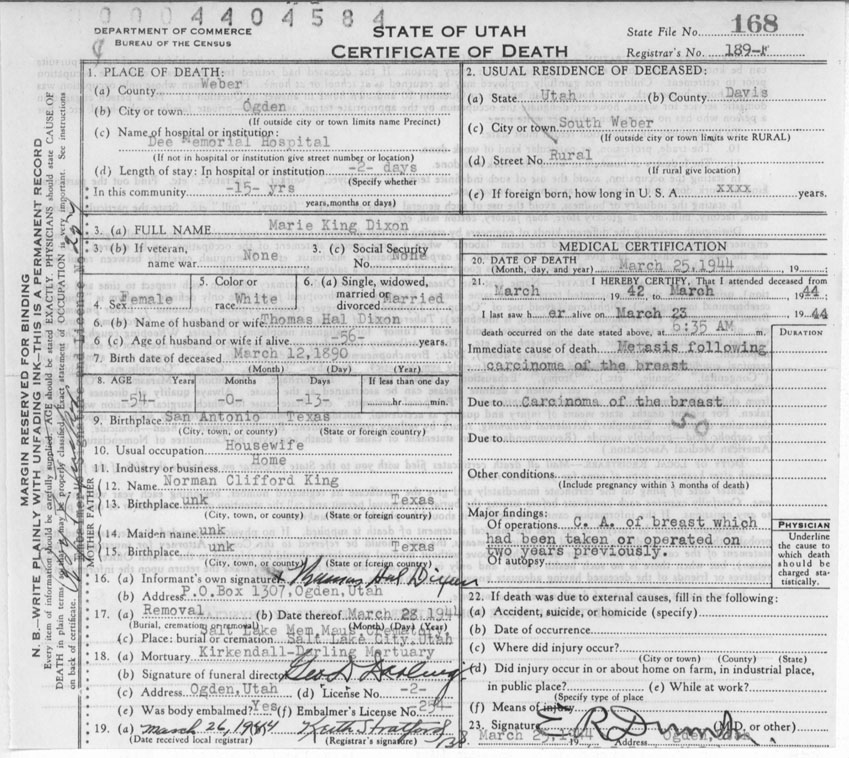 0004404584
DEPARTMENT OF COMMERCE
BUREAU OF THE CENSUS
STATE OF UTAH
CERTIFICATE OF DEATH
State File No. 168
Registrar's No. 189-
MARGIN RESERVED FOR BINDING
N. B.—WRITE PLAINLY WITH UNFADING INK—THIS IS A PERMANENT RECORD
Every item of information should be carefully supplied. AGE should be stated EXACTLY. PHYSICIANS should state CAUSE OF
DEATH in plain terms, so that it may be properly classified. Exact statement of OCCUPATION is very important. See instructions
on back of certificate.
1. PLACE OF DEATH:
(a) County Weber
(b) City or town Ogden
(If outside city or town limits name Precinct)
(c) Name of hospital or institution:
Dee Memorial Hospital
(If not in hospital or institution give street number or location)
(d) Length of stay: In hospital or institution -2- days
(Specify whether
In this community -15- yrs
years, months or days)
2. USUAL RESIDENCE OF DECEASED:
(a) State Utah (b) County Davis
(c) City or town South Weber
(If outside city or town limits write RURAL)
(d) Street No. Rural
(If rural give location)
(e) If foreign born, how long in U. S. A. xxxx years.
3. (a) FULL NAME Marie King Dixon
3. (b) If veteran, name war None
3. (c) Social Security No. None
4. Sex Female
5. Color or race White
6. (a) Single, widowed, married or divorced Married
6. (b) Name of husband or wife Thomas Hal Dixon
6. (c) Age of husband or wife if alive -56- years.
7. Birth date of deceased March 12,1890
(Month) (Day) (Year)
8. AGE Years Months Days If less than one day
-54- -0- -13- hr. min.
9. Birthplace San Antonio Texas
(City, town, or county) (State or foreign country)
10. Usual occupation Housewife
11. Industry or business Home
FATHER
12. Name Norman Clifford King
13. Birthplace unk Texas
(City, town, or county) (State or foreign country)
MOTHER
14. Maiden name unk
15. Birthplace unk Texas
(City, town, or county) (State or foreign country)
16. (a) Informant's own signature Thomas Hal Dixon
(b) Address P.O.Box 1307,Ogden,Utah
17. (a) Removal (b) Date thereof March 28,1944
(Burial, cremation or removal) (Month) (Day) (Year)
Salt Lake Mem Maus Crematory
(c) Place: burial or cremation Salt Lake City,Utah
18. (a) Mortuary Kirkendall-Darling Mortuary
(b) Signature of funeral director Geo D Darling
(c) Address Ogden,Utah (d) License No. -2-
(e) Was body embalmed? Yes (f) Embalmer's License No. 254
19. (a) March 26, 1944 Keith Stratford
(Date received local registrar) (Registrar's signature)
MEDICAL CERTIFICATION
20. DATE OF DEATH
(Month, day, and year) March 25,1944 , 19 ;
21. I HEREBY CERTIFY, That I attended deceased from
March , 19 42 to March 1944
I last saw her alive on March 23 , 1944
death occurred on the date stated above, at 6:35 AM m.
DURATION
Immediate cause of death Metasis following
carcinoma of the breast
Due to Carcinoma of the breast
50
Due to
Other conditions
(Include pregnancy within 3 months of death)
Major findings:
Of operations C. A. of breast which
had been taken or operated on
two years previously.
Of autopsy
PHYSICIAN
Underline
the cause to
which death
should be
charged sta-
tistically.
22. If death was due to external causes, fill in the following:
(a) Accident, suicide, or homicide (specify)
(b) Date of occurrence
(c) Where did injury occur?
(City or town) (County) (State)
(d) Did injury occur in or about home on farm, in industrial place,
in public place? (e) While at work?
(Specify type of place
(f) Means of injury
23. Signature E R Dumke (M.D. or other)
March 25, 19 44 Address Ogden, Utah